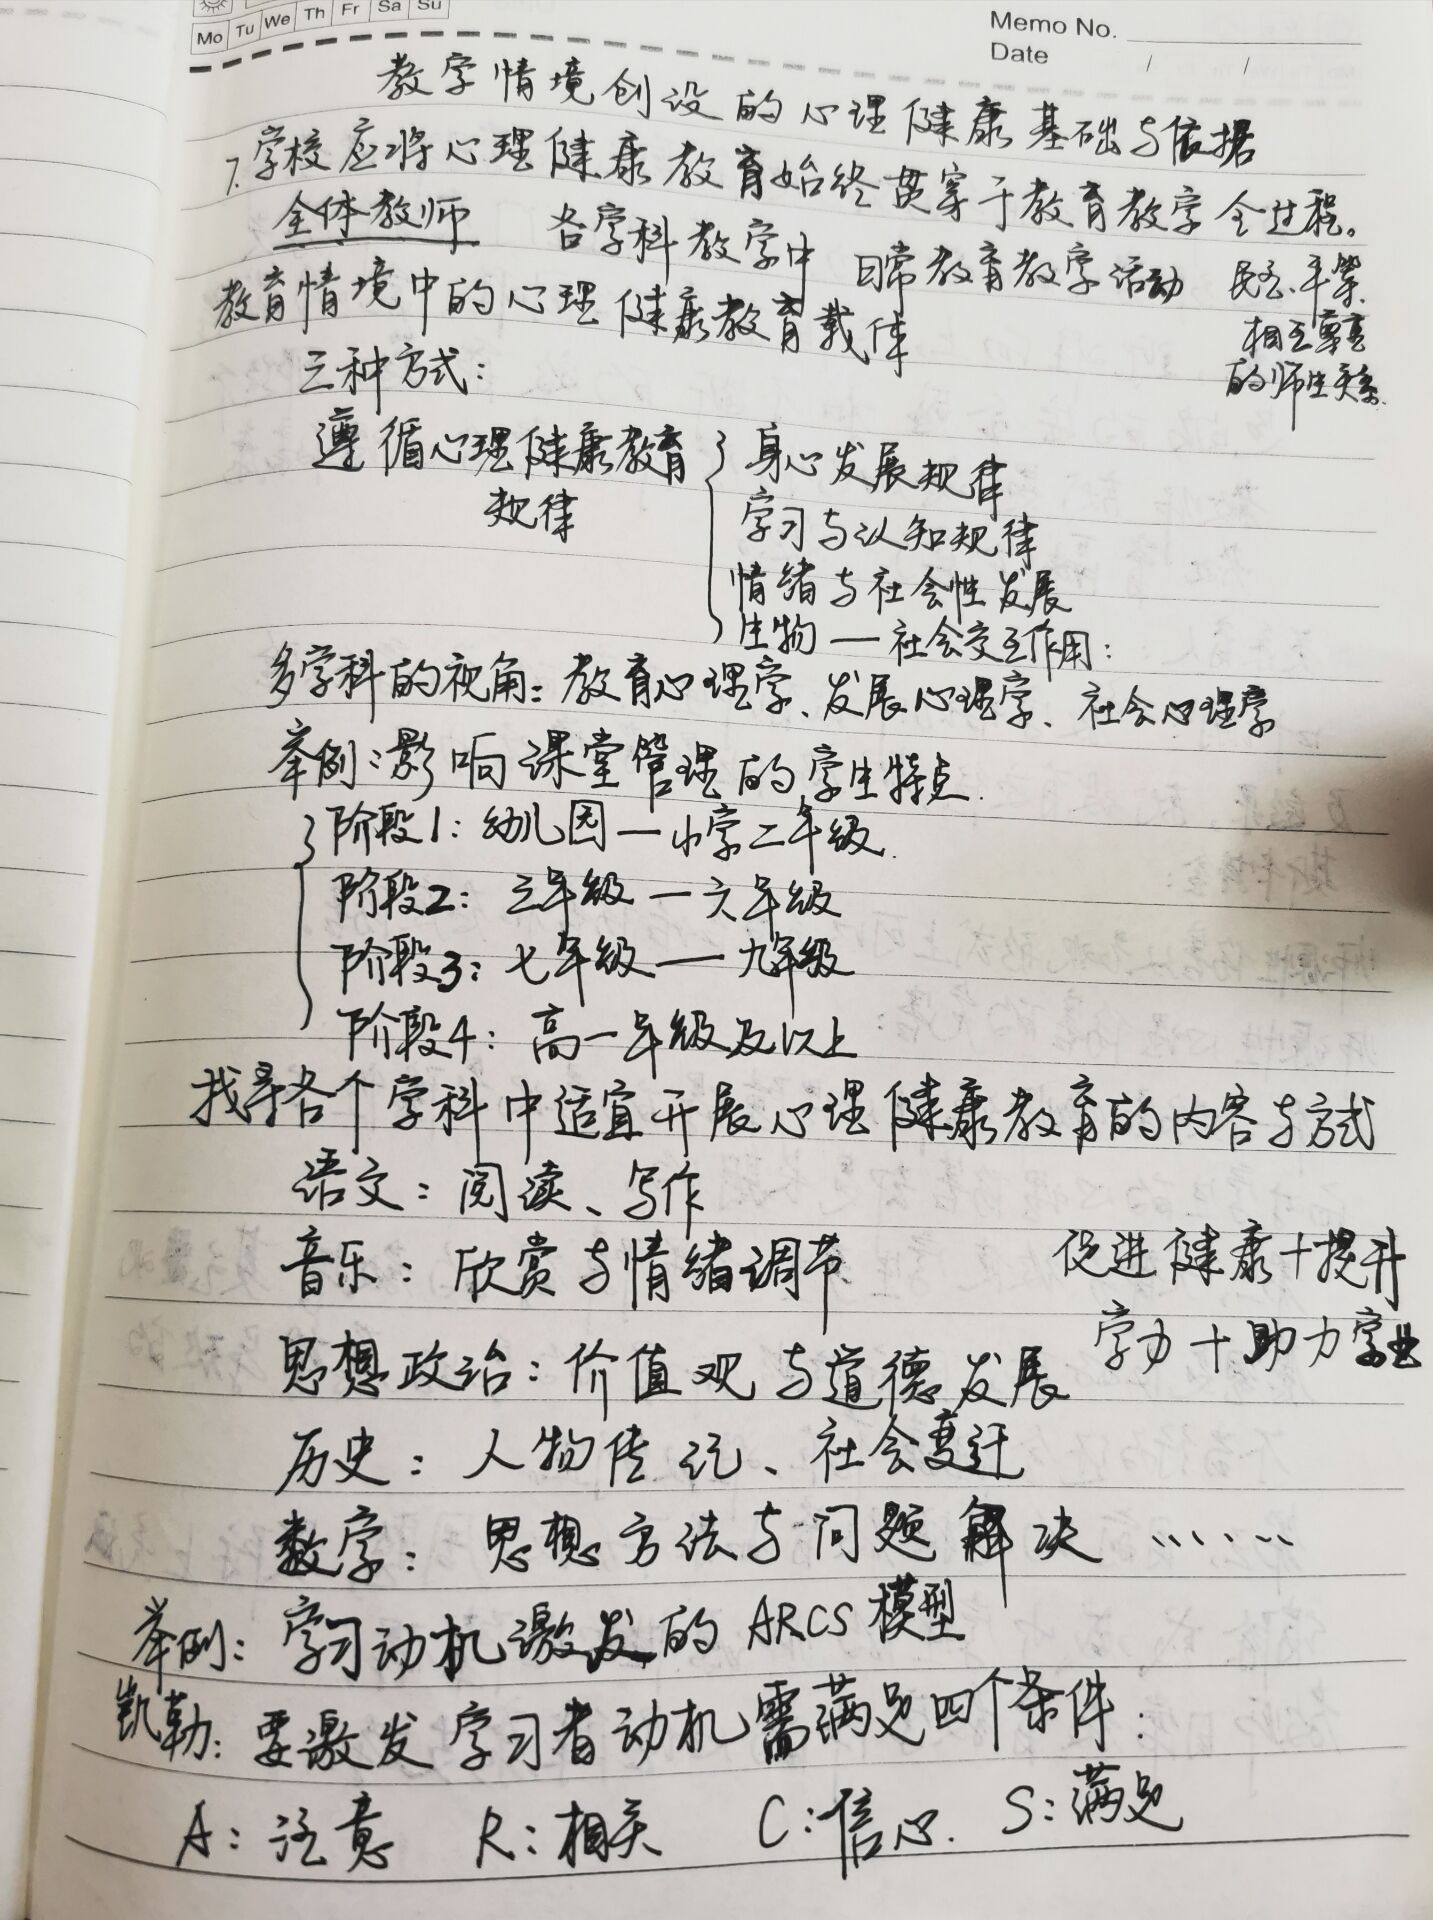 Mo Tu We Th Fr Sa Su
Memo No.
Date / /
教学情境创设的心理健康基础与依据
7.学校应将心理健康教育始终贯穿于教育教学全过程。
全体教师 各学科教学中 日常教育教学活动 民主、平等、
相互尊重
的师生关系.
教育情境中的心理健康教育载体
三种方式:
遵循心理健康教育
规律
身心发展规律
学习与认知规律
情绪与社会性发展
生物—社会交互作用:
多学科的视角:教育心理学、发展心理学、社会心理学
举例:影响课堂管理的学生特点.
阶段1:幼儿园—小学二年级.
阶段2:三年级—六年级
阶段3:七年级—九年级
阶段4:高一年级及以上
找寻各个学科中适宜开展心理健康教育的内容与方式
语文:阅读、写作
音乐:欣赏与情绪调节
促进健康+提升
学力+助力学业
思想政治:价值观与道德发展
历史:人物传记、社会变迁
数学:思想方法与问题解决……
举例:学习动机激发的ARCS模型
凯勒:要激发学习者动机需满足四个条件:
A:注意 R:相关 C:信心. S:满足